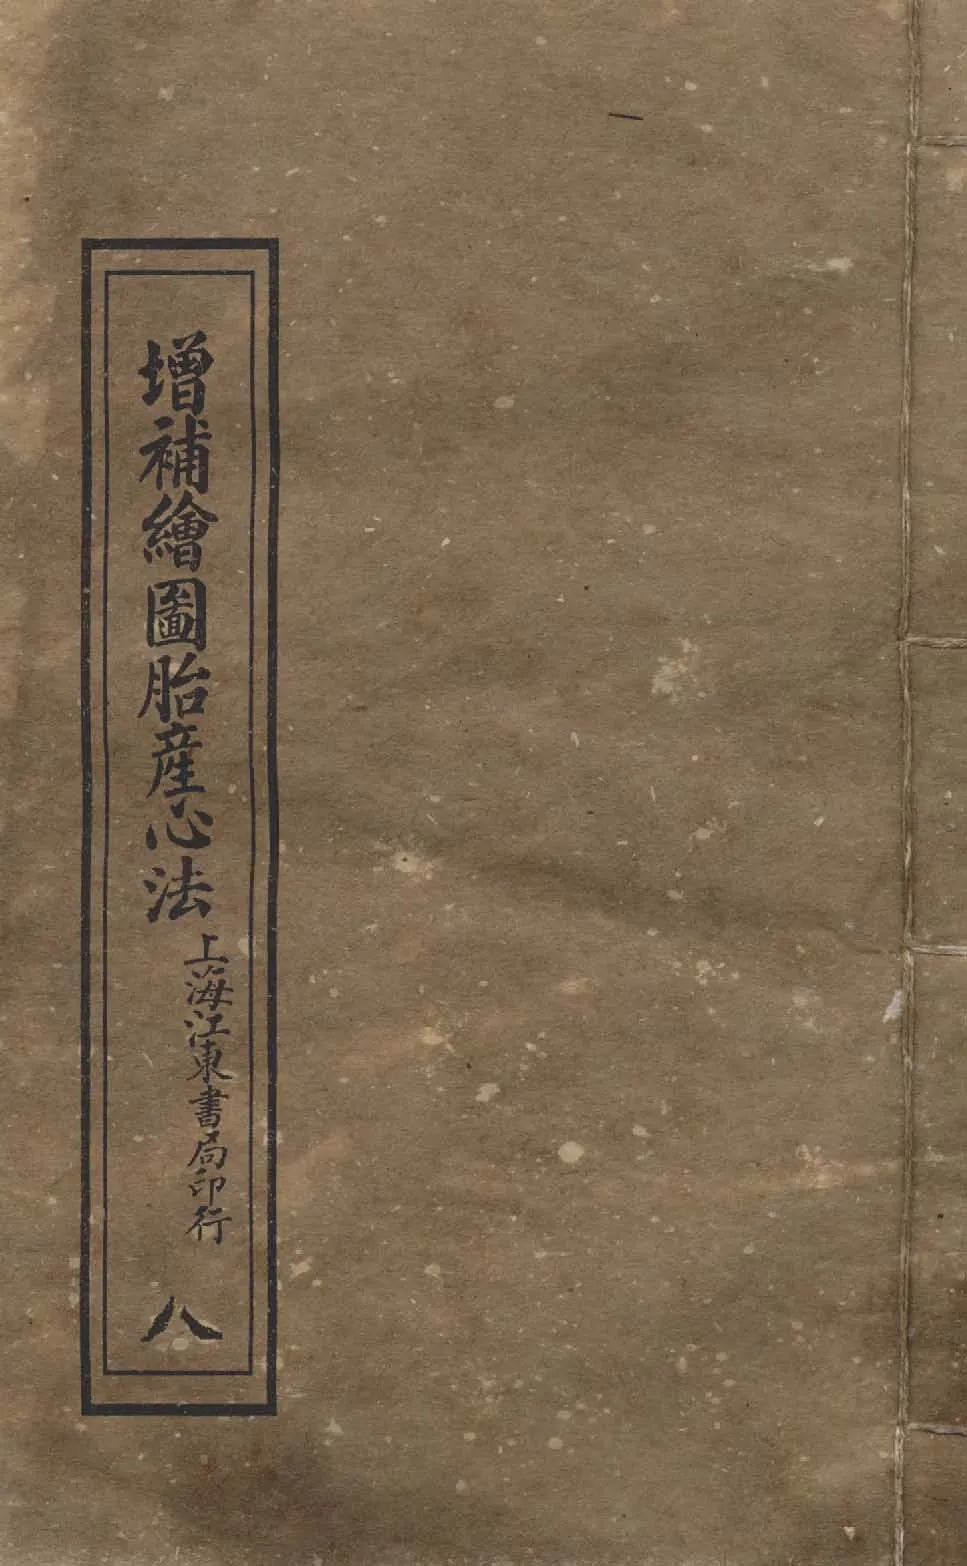 增補繪圖胎產心法
上海江東書局印行
八